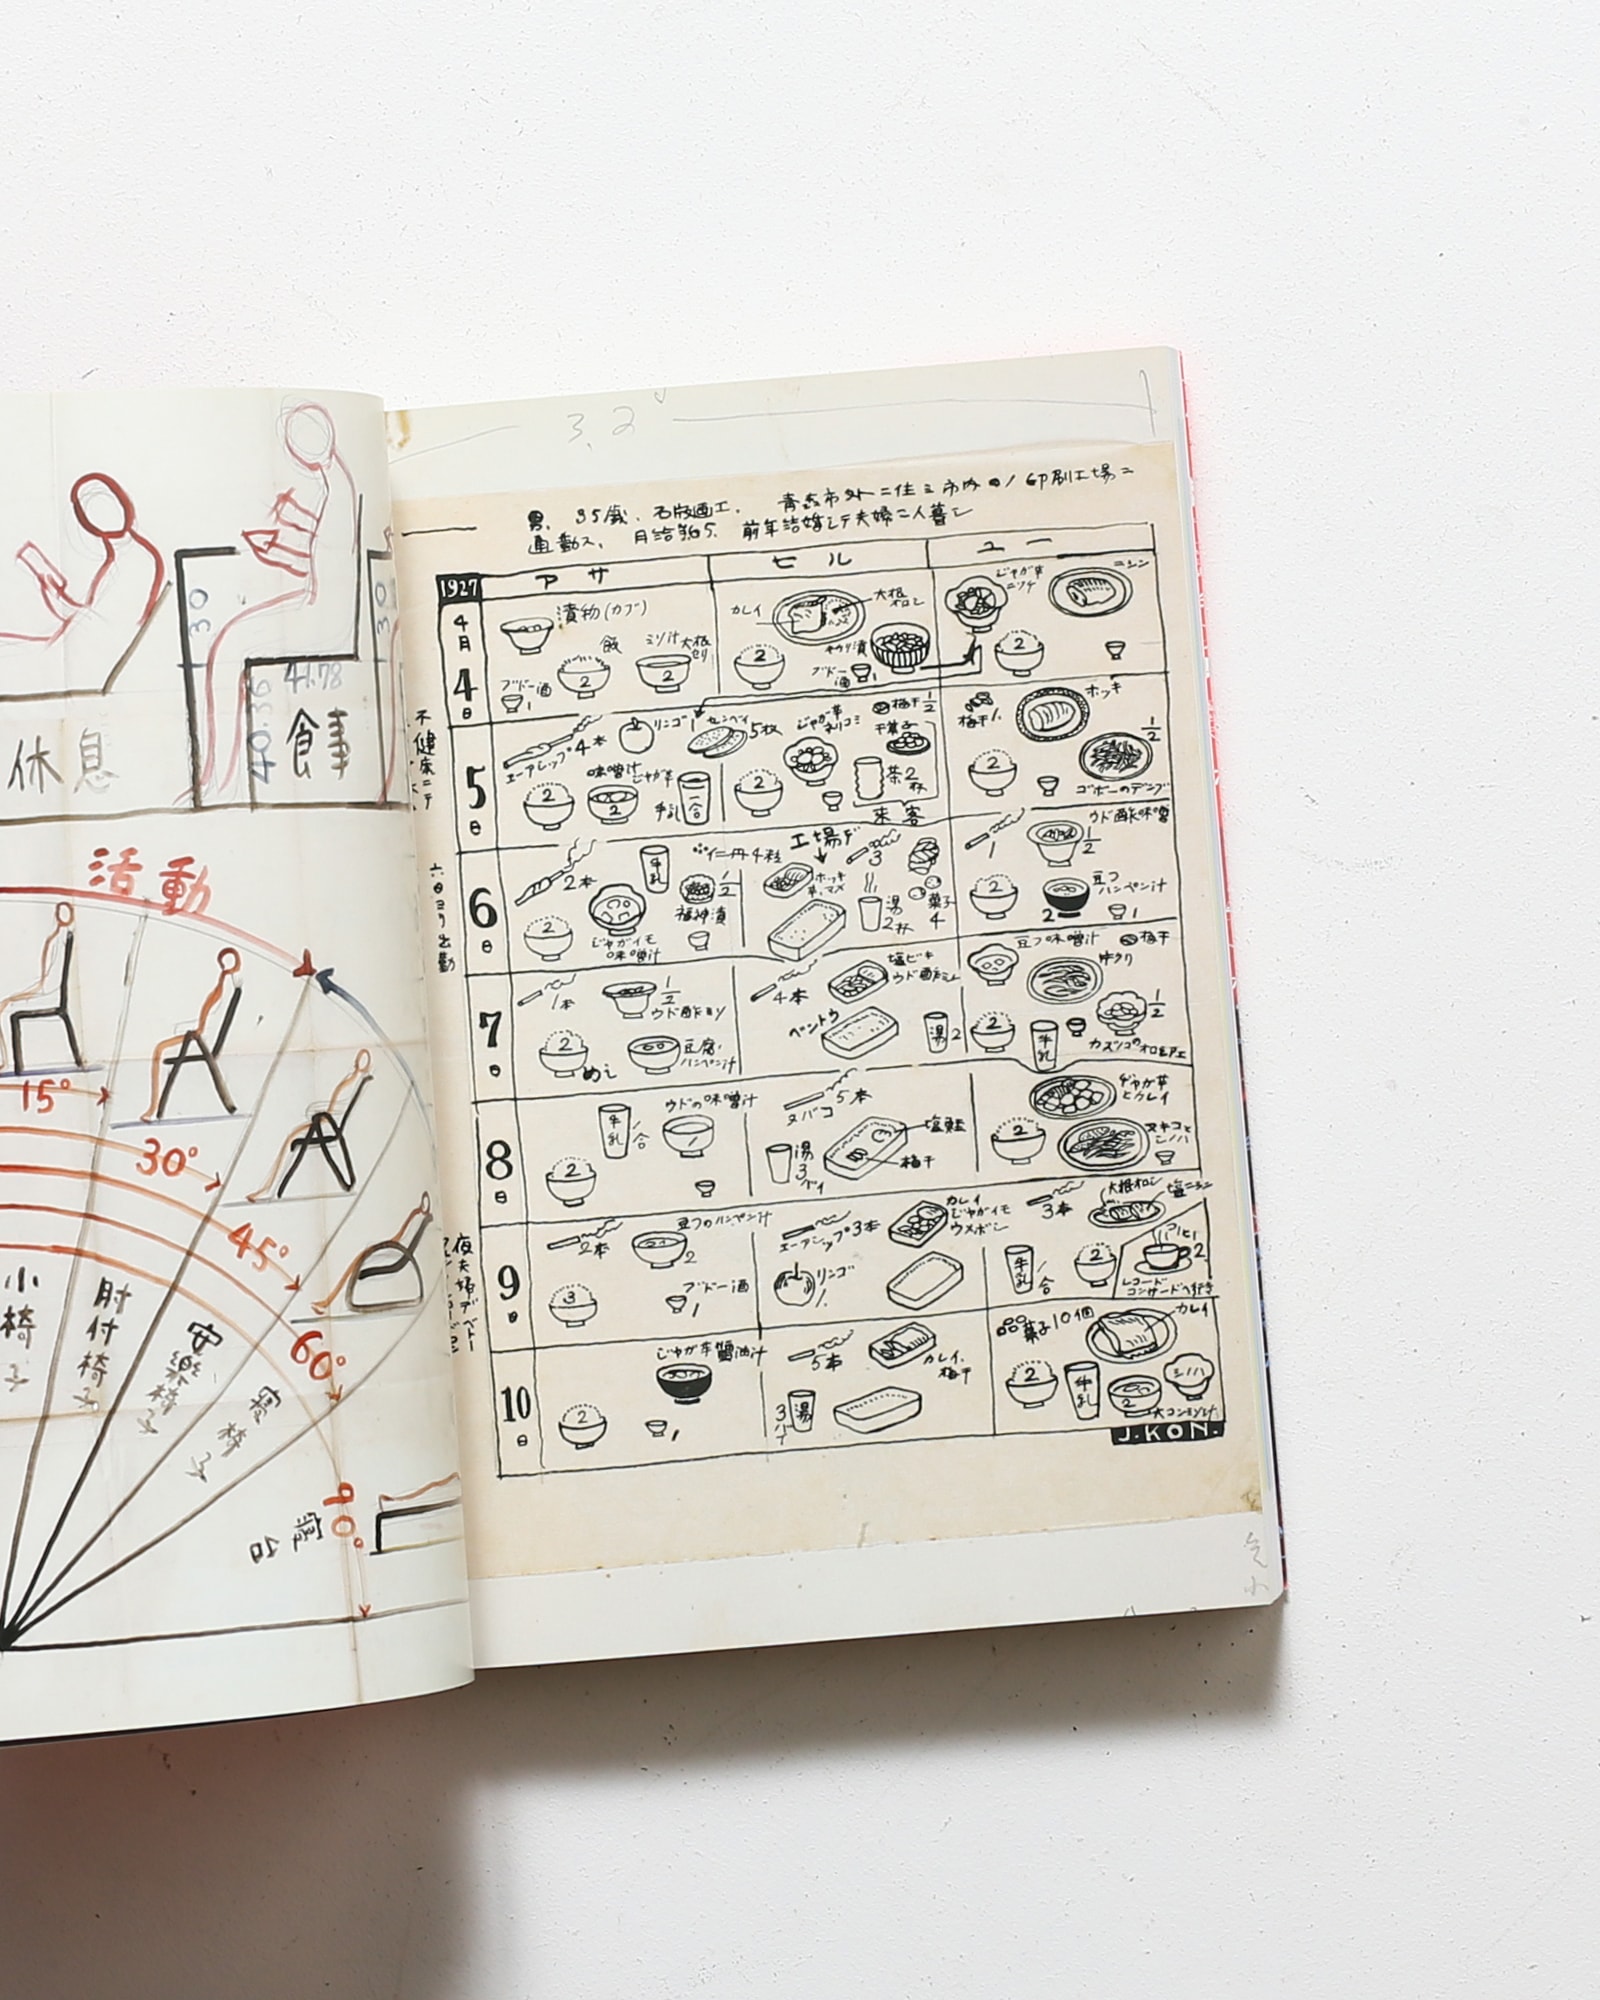 休息
食事
30
41.78
40.36
30
活動
15°
30°
45°
60°
90°
小椅子
肘付椅子
安楽椅子
寝椅子
寝台
3.2
男、35歳、石版画工、青森市外ニ住ミ市内ノ印刷工場ニ
通勤ス、月給¥65、前年結婚シテ夫婦二人暮シ
不健康ニテ
六日ヨリ出勤
1927
アサ
ヒル
ユー
4月
4日
漬物(カブ)
飯
ミソ汁 大根 セリ
2
2
ブドー酒
1
カレイ
大根オロシ
2
ブドー酒
1
じゃが芋ニツケ
ニシン
2
5日
エーアシップ4本
リンゴ1
センベイ
5枚
2
味噌汁 じゃが芋
2
牛乳
一合
じゃが芋
梅干1/2
干菓子
2
茶2杯
来客
梅干
ホッキ
1/2
2
ゴボーのデンブ
6日
2本
牛乳
仁丹4粒
1/2
福神漬
2
じゃがイモ
味噌汁
工場デ
3
ホッキ
湯
2杯
菓子
4
1
ウド酢味噌
1/2
2
豆フ
ハンペン汁
2
1
7日
1本
1/2
2
めし
豆腐・
ハンペン汁
4本
塩ビキ
ベントウ
湯2
豆フ味噌汁
梅干
2
牛乳
1/2
8日
牛乳
合
ウドの味噌汁
2
タバコ
5本
湯
3
バイ
塩鮭
梅干
じゃが芋
とカレイ
2
9日
2本
豆フのハンペン汁
2
3
ブドー酒
1
エーアシップ3本
カレイ
じゃがイモ
ウメボシ
リンゴ
3本
大根オロシ
塩ニシン
牛乳
合
2
コーヒー
2
レコード
コンサートヘ行き
10日
じゃが芋醤油汁
2
1
5本
カレイ、
梅干
湯
菓子10個
カレイ
2
牛乳
2
J.KON.